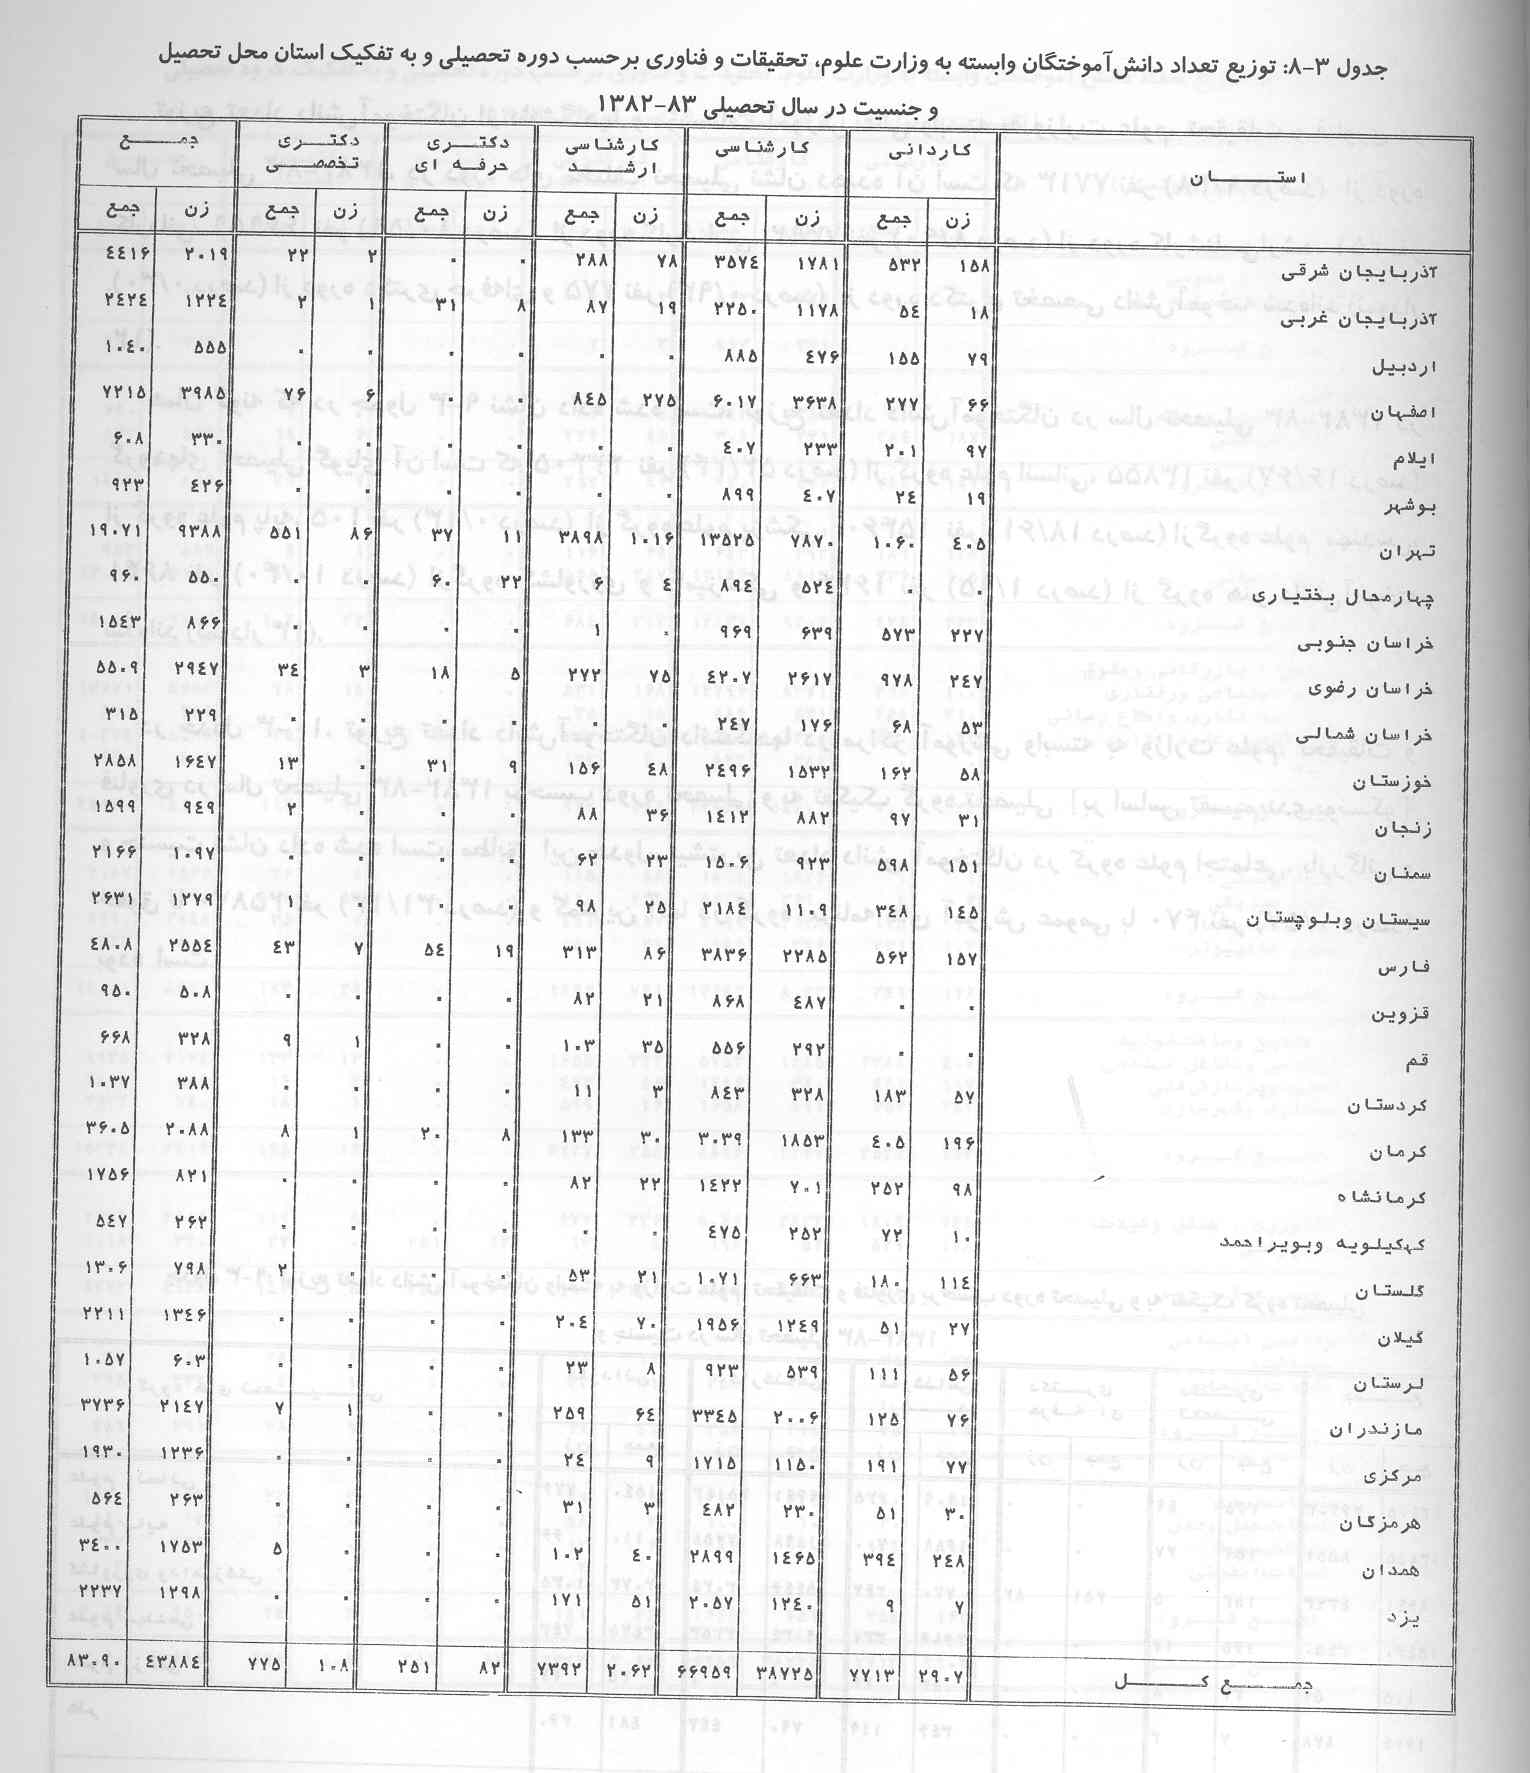 جدول ۳-۸: توزیع تعداد دانش‌آموختگان وابسته به وزارت علوم، تحقیقات و فناوری برحسب دوره تحصیلی و به تفکیک استان محل تحصیل
و جنسیت در سال تحصیلی ۸۳-۱۳۸۲
استان کاردانی کارشناسی کارشناسی ارشد دکتری حرفه ای دکتری تخصصی جمع
زن جمع زن جمع زن جمع زن جمع زن جمع زن جمع
آذربایجان شرقی ۱۵۸ ۵۳۲ ۱۷۸۱ ۳۵۷٤ ۷۸ ۲۸۸ ۰ ۰ ۲ ۲۲ ۲۰۱۹ ٤٤۱۶
آذربایجان غربی ۱۸ ۵٤ ۱۱۷۸ ۲۲۵۰ ۱۹ ۸۷ ۸ ۳۱ ۱ ۲ ۱۲۲٤ ۲٤۲٤
اردبیل ۷۹ ۱۵۵ ٤۷۶ ۸۸۵ ۰ ۰ ۰ ۰ ۰ ۰ ۵۵۵ ۱۰٤۰
اصفهان ۶۶ ۲۷۷ ۳۶۳۸ ۶۰۱۷ ۲۷۵ ۸٤۵ ۰ ۰ ۶ ۷۶ ۳۹۸۵ ۷۲۱۵
ایلام ۹۷ ۲۰۱ ۲۳۳ ٤۰۷ ۰ ۰ ۰ ۰ ۰ ۰ ۳۳۰ ۶۰۸
بوشهر ۱۹ ۲٤ ٤۰۷ ۸۹۹ ۰ ۰ ۰ ۰ ۰ ۰ ٤۲۶ ۹۲۳
تهران ٤۰۵ ۱۰۶۰ ۷۸۷۰ ۱۳۵۲۵ ۱۰۱۶ ۳۸۹۸ ۱۱ ۳۷ ۸۶ ۵۵۱ ۹۳۸۸ ۱۹۰۷۱
چهارمحال بختیاری ۰ ۰ ۵۲٤ ۸۹٤ ٤ ۶ ۲۲ ۶۰ ۰ ۰ ۵۵۰ ۹۶۰
خراسان جنوبی ۲۲۷ ۵۷۳ ۶۳۹ ۹۶۹ ۰ ۱ ۰ ۰ ۰ ۰ ۸۶۶ ۱۵٤۳
خراسان رضوی ۲٤۷ ۹۷۸ ۲۶۱۷ ٤۲۰۷ ۷۵ ۲۷۲ ۵ ۱۸ ۳ ۳٤ ۲۹٤۷ ۵۵۰۹
خراسان شمالی ۵۳ ۶۸ ۱۷۶ ۲٤۷ ۰ ۰ ۰ ۰ ۰ ۰ ۲۲۹ ۳۱۵
خوزستان ۵۸ ۱۶۲ ۱۵۳۲ ۲٤۹۶ ٤۸ ۱۵۶ ۹ ۳۱ ۰ ۱۳ ۱۶٤۷ ۲۸۵۸
زنجان ۳۱ ۹۷ ۸۸۲ ۱٤۱۲ ۳۶ ۸۸ ۰ ۰ ۰ ۲ ۹٤۹ ۱۵۹۹
سمنان ۱۵۱ ۵۹۸ ۹۲۳ ۱۵۰۶ ۲۳ ۶۲ ۰ ۰ ۰ ۰ ۱۰۹۷ ۲۱۶۶
سیستان وبلوچستان ۱٤۵ ۳٤۸ ۱۱۰۹ ۲۱۸٤ ۲۵ ۹۸ ۰ ۰ ۰ ۱ ۱۲۷۹ ۲۶۳۱
فارس ۱۵۷ ۵۶۲ ۲۲۸۵ ۳۸۳۶ ۸۶ ۳۱۳ ۱۹ ۵٤ ۷ ٤۳ ۲۵۵٤ ٤۸۰۸
قزوین ۰ ۰ ٤۸۷ ۸۶۸ ۲۱ ۸۲ ۰ ۰ ۰ ۰ ۵۰۸ ۹۵۰
قم ۰ ۰ ۲۹۲ ۵۵۶ ۳۵ ۱۰۳ ۰ ۰ ۱ ۹ ۳۲۸ ۶۶۸
کردستان ۵۷ ۱۸۳ ۳۲۸ ۸٤۳ ۳ ۱۱ ۰ ۰ ۰ ۰ ۳۸۸ ۱۰۳۷
کرمان ۱۹۶ ٤۰۵ ۱۸۵۳ ۳۰۳۹ ۳۰ ۱۳۳ ۸ ۲۰ ۱ ۸ ۲۰۸۸ ۳۶۰۵
کرمانشاه ۹۸ ۲۵۲ ۷۰۱ ۱٤۲۲ ۲۲ ۸۲ ۰ ۰ ۰ ۰ ۸۲۱ ۱۷۵۶
کهکیلویه وبویراحمد ۱۰ ۷۲ ۲۵۲ ٤۷۵ ۰ ۰ ۰ ۰ ۰ ۰ ۲۶۲ ۵٤۷
گلستان ۱۱٤ ۱۸۰ ۶۶۳ ۱۰۷۱ ۲۱ ۵۳ ۰ ۰ ۰ ۲ ۷۹۸ ۱۳۰۶
گیلان ۲۷ ۵۱ ۱۲٤۹ ۱۹۵۶ ۷۰ ۲۰٤ ۰ ۰ ۰ ۰ ۱۳٤۶ ۲۲۱۱
لرستان ۵۶ ۱۱۱ ۵۳۹ ۹۲۳ ۸ ۲۳ ۰ ۰ ۰ ۰ ۶۰۳ ۱۰۵۷
مازندران ۷۶ ۱۲۵ ۲۰۰۶ ۳۳٤۵ ۶٤ ۲۵۹ ۰ ۰ ۱ ۷ ۲۱٤۷ ۳۷۳۶
مرکزی ۷۷ ۱۹۱ ۱۱۵۰ ۱۷۱۵ ۹ ۲٤ ۰ ۰ ۰ ۰ ۱۲۳۶ ۱۹۳۰
هرمزگان ۳۰ ۵۱ ۲۳۰ ٤۸۲ ۳ ۳۱ ۰ ۰ ۰ ۰ ۲۶۳ ۵۶٤
همدان ۲٤۸ ۳۹٤ ۱٤۶۵ ۲۸۹۹ ٤۰ ۱۰۲ ۰ ۰ ۰ ۵ ۱۷۵۳ ۳٤۰۰
یزد ۷ ۹ ۱۲٤۰ ۲۰۵۷ ۵۱ ۱۷۱ ۰ ۰ ۰ ۰ ۱۲۹۸ ۲۲۳۷
جمع کل ۲۹۰۷ ۷۷۱۳ ۳۸۷۲۵ ۶۶۹۵۹ ۲۰۶۲ ۷۳۹۲ ۸۲ ۲۵۱ ۱۰۸ ۷۷۵ ٤۳۸۸٤ ۸۳۰۹۰